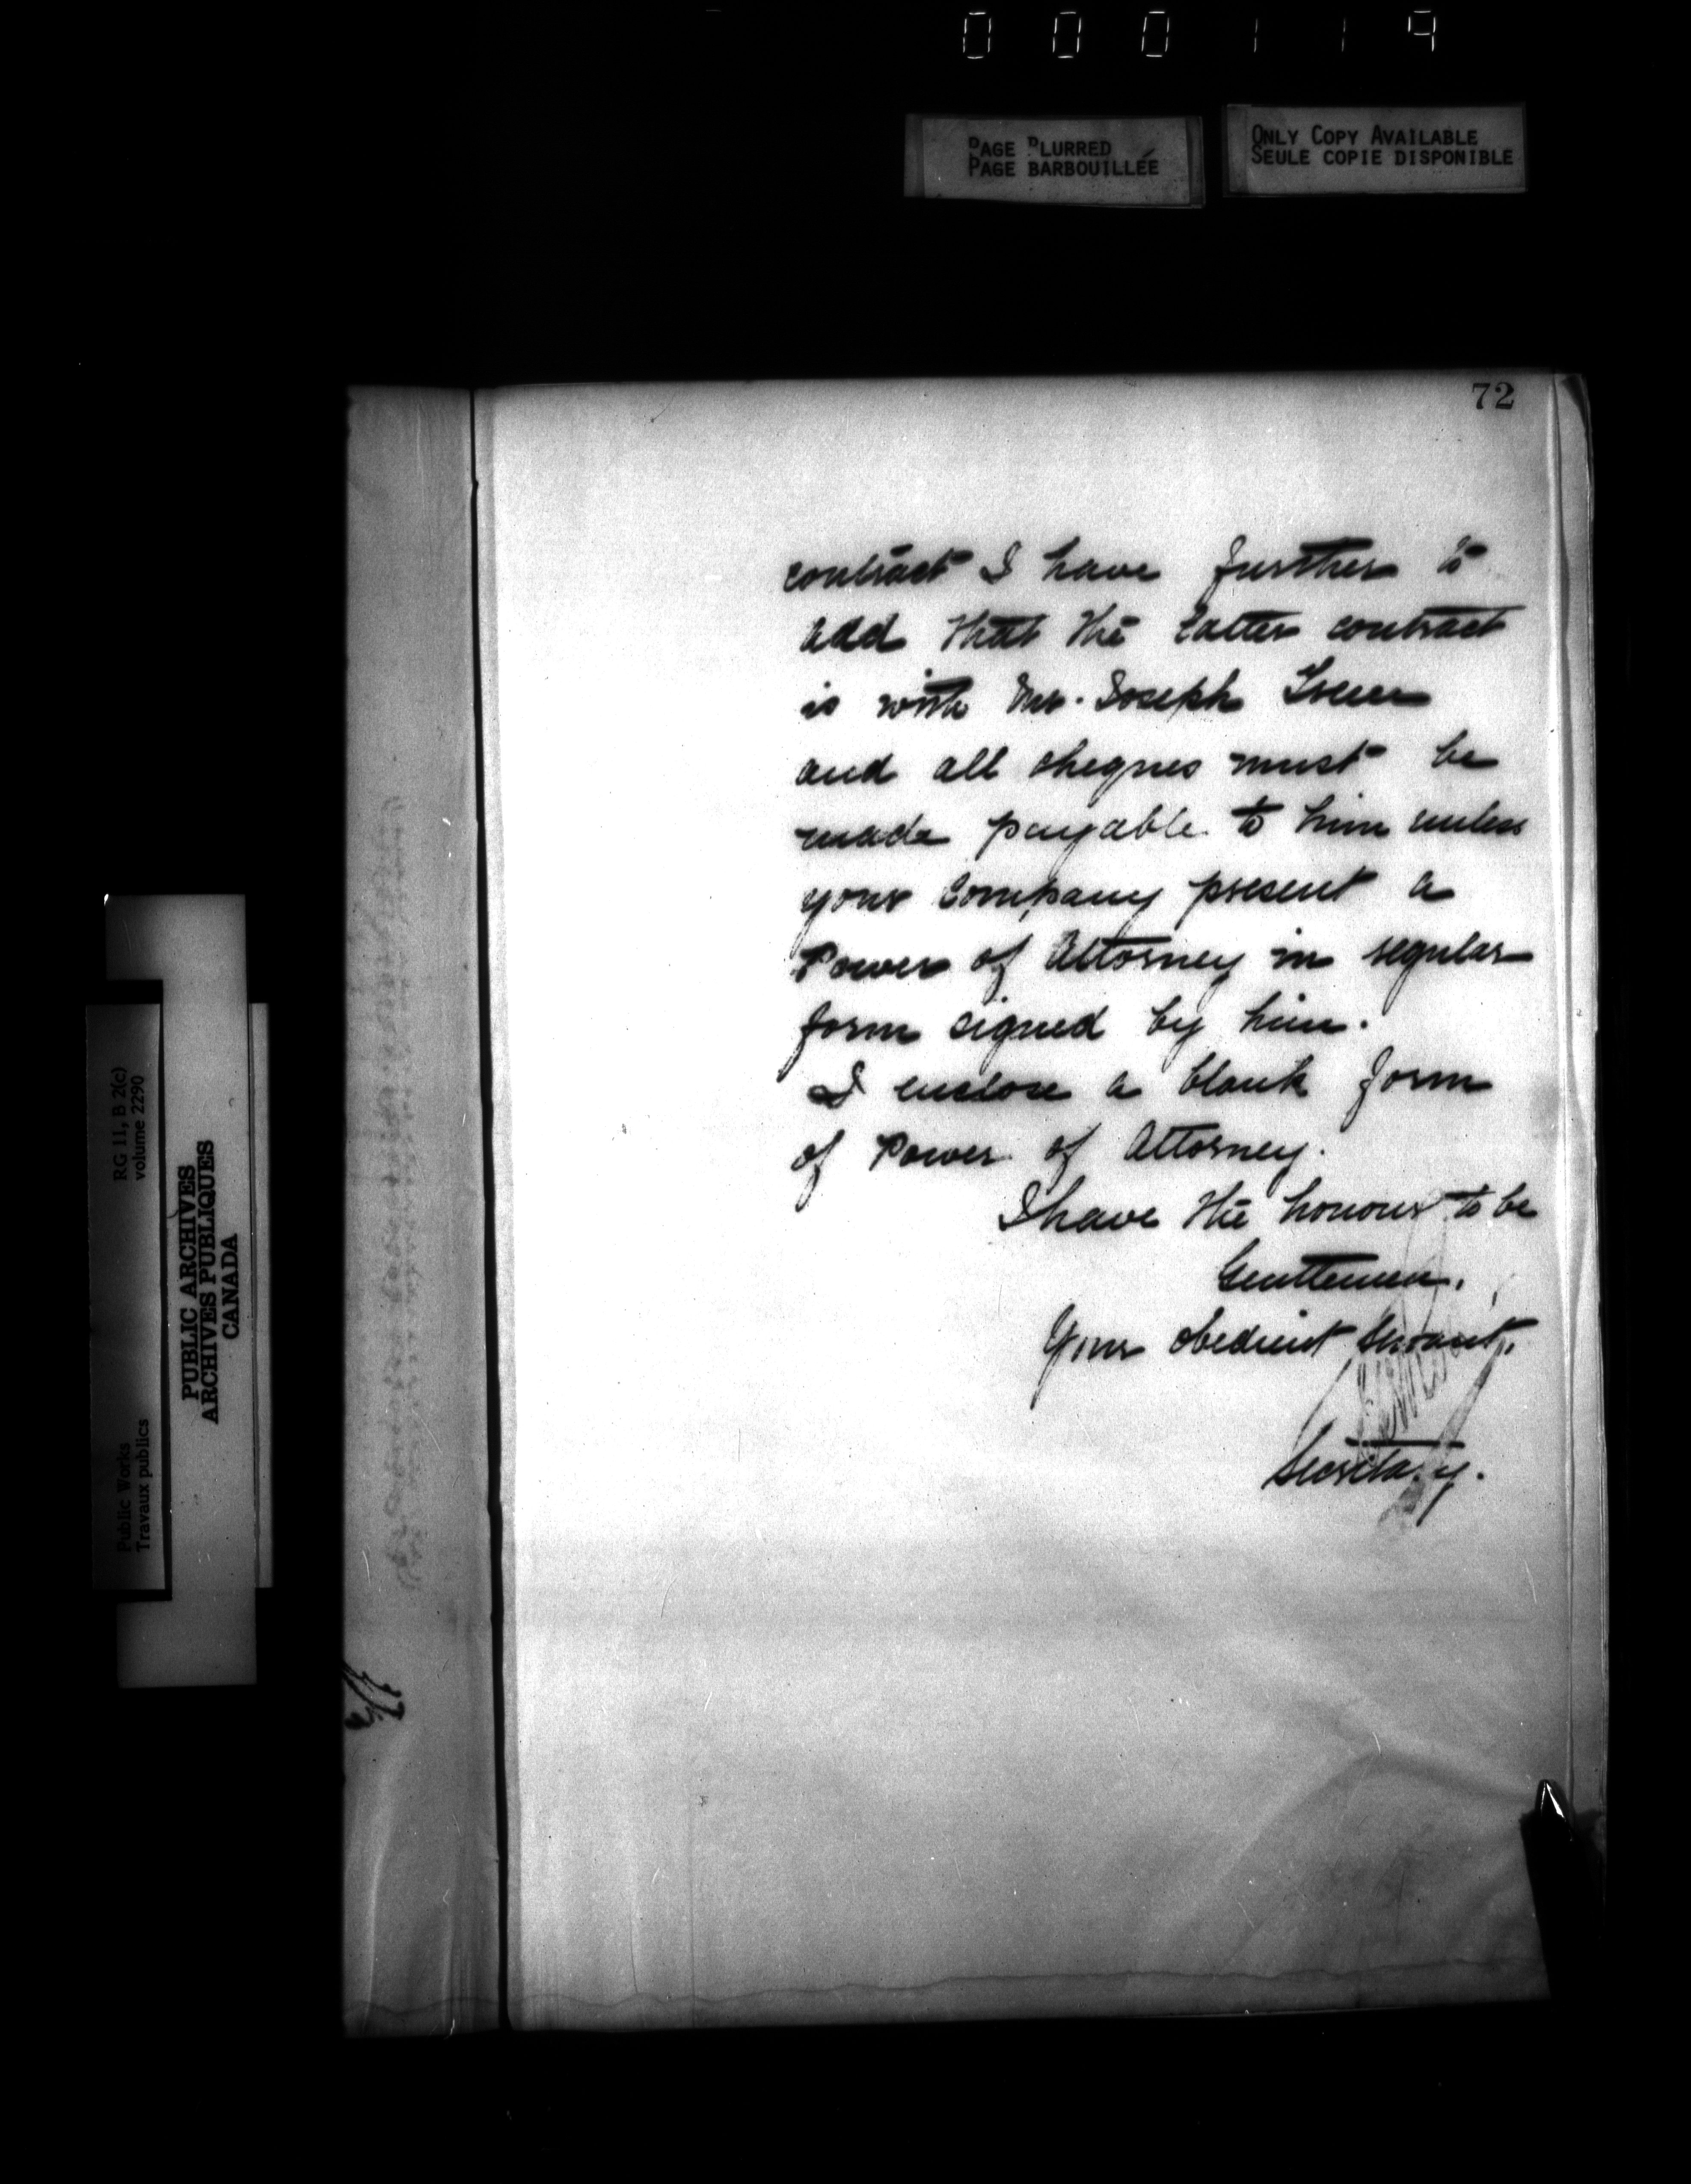 000119
PAGE BLURRED
PAGE BARBOUILLÉE
ONLY COPY AVAILABLE
SEULE COPIE DISPONIBLE
72
contract I have further to
add that the latter contract
is with Mr. Joseph
and all cheques must be
made payable to him unless
your Company present a
Power of Attorney in regular
form signed by him.
I enclose a blank form
of Power of Attorney.
I have the honour to be
Gentlemen,
Your obedient Servant,
Secretary.
RG 11, B 2(c)
volume 2290
PUBLIC ARCHIVES
ARCHIVES PUBLIQUES
CANADA
Public Works
Travaux publics